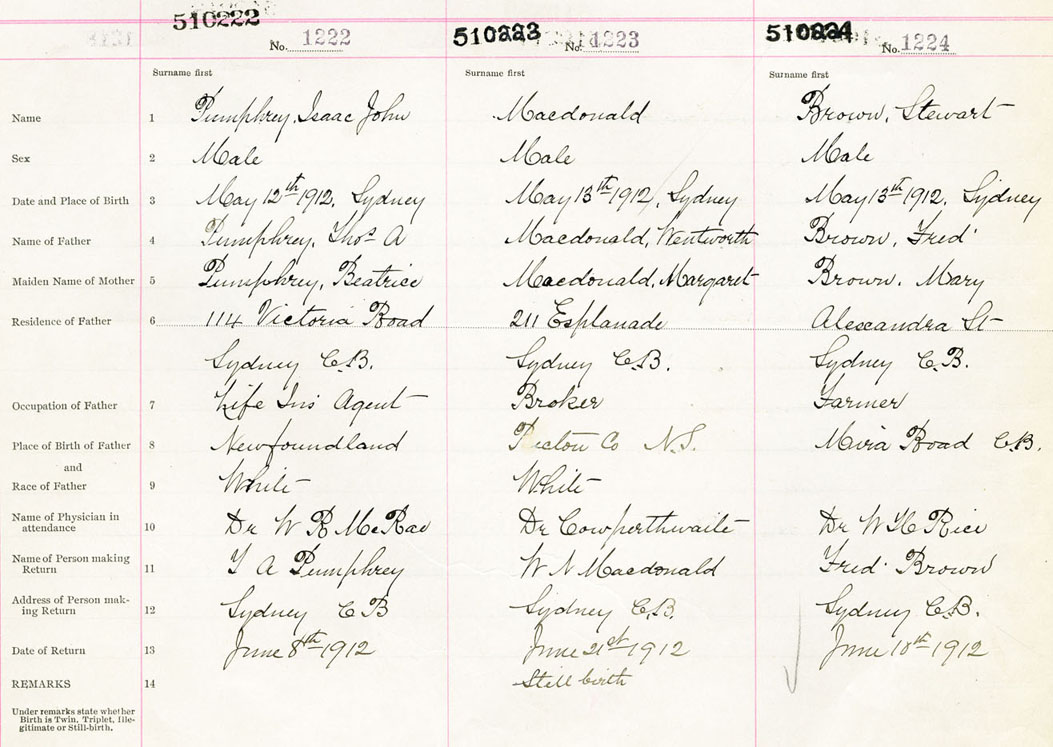 510222 510223 510224
No. 1222 No. 1223 No. 1224
Surname first Surname first Surname first
Name 1 Pumphrey, Isaac John Macdonald Brown, Stewart
Sex 2 Male Male Male
Date and Place of Birth 3 May 12th 1912, Sydney May 13th 1912, Sydney May 13th 1912, Sydney
Name of Father 4 Pumphrey, Thos A Macdonald, Wentworth Brown, Fred
Maiden Name of Mother 5 Pumphrey, Beatrice Macdonald, Margaret Brown, Mary
Residence of Father 6 114 Victoria Road 211 Esplanade Alexandra St
Sydney C.B. Sydney C.B. Sydney C.B.
Occupation of Father 7 Life Ins Agent Broker Farmer
Place of Birth of Father 8 Newfoundland Pictou Co N.S. Mira Road C.B.
and
Race of Father 9 White White
Name of Physician in
attendance 10 Dr W R McRae Dr Cowperthwaite Dr W H Rice
Name of Person making
Return 11 T A Pumphrey W N Macdonald Fred Brown
Address of Person mak-
ing Return 12 Sydney C B Sydney C.B. Sydney C.B.
Date of Return 13 June 8th 1912 June 21st 1912 June 10th 1912
REMARKS 14 Still birth
Under remarks state whether
Birth is Twin, Triplet, Ille-
gitimate or Still-birth.